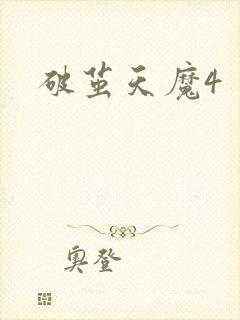 破茧天魔4
奥登